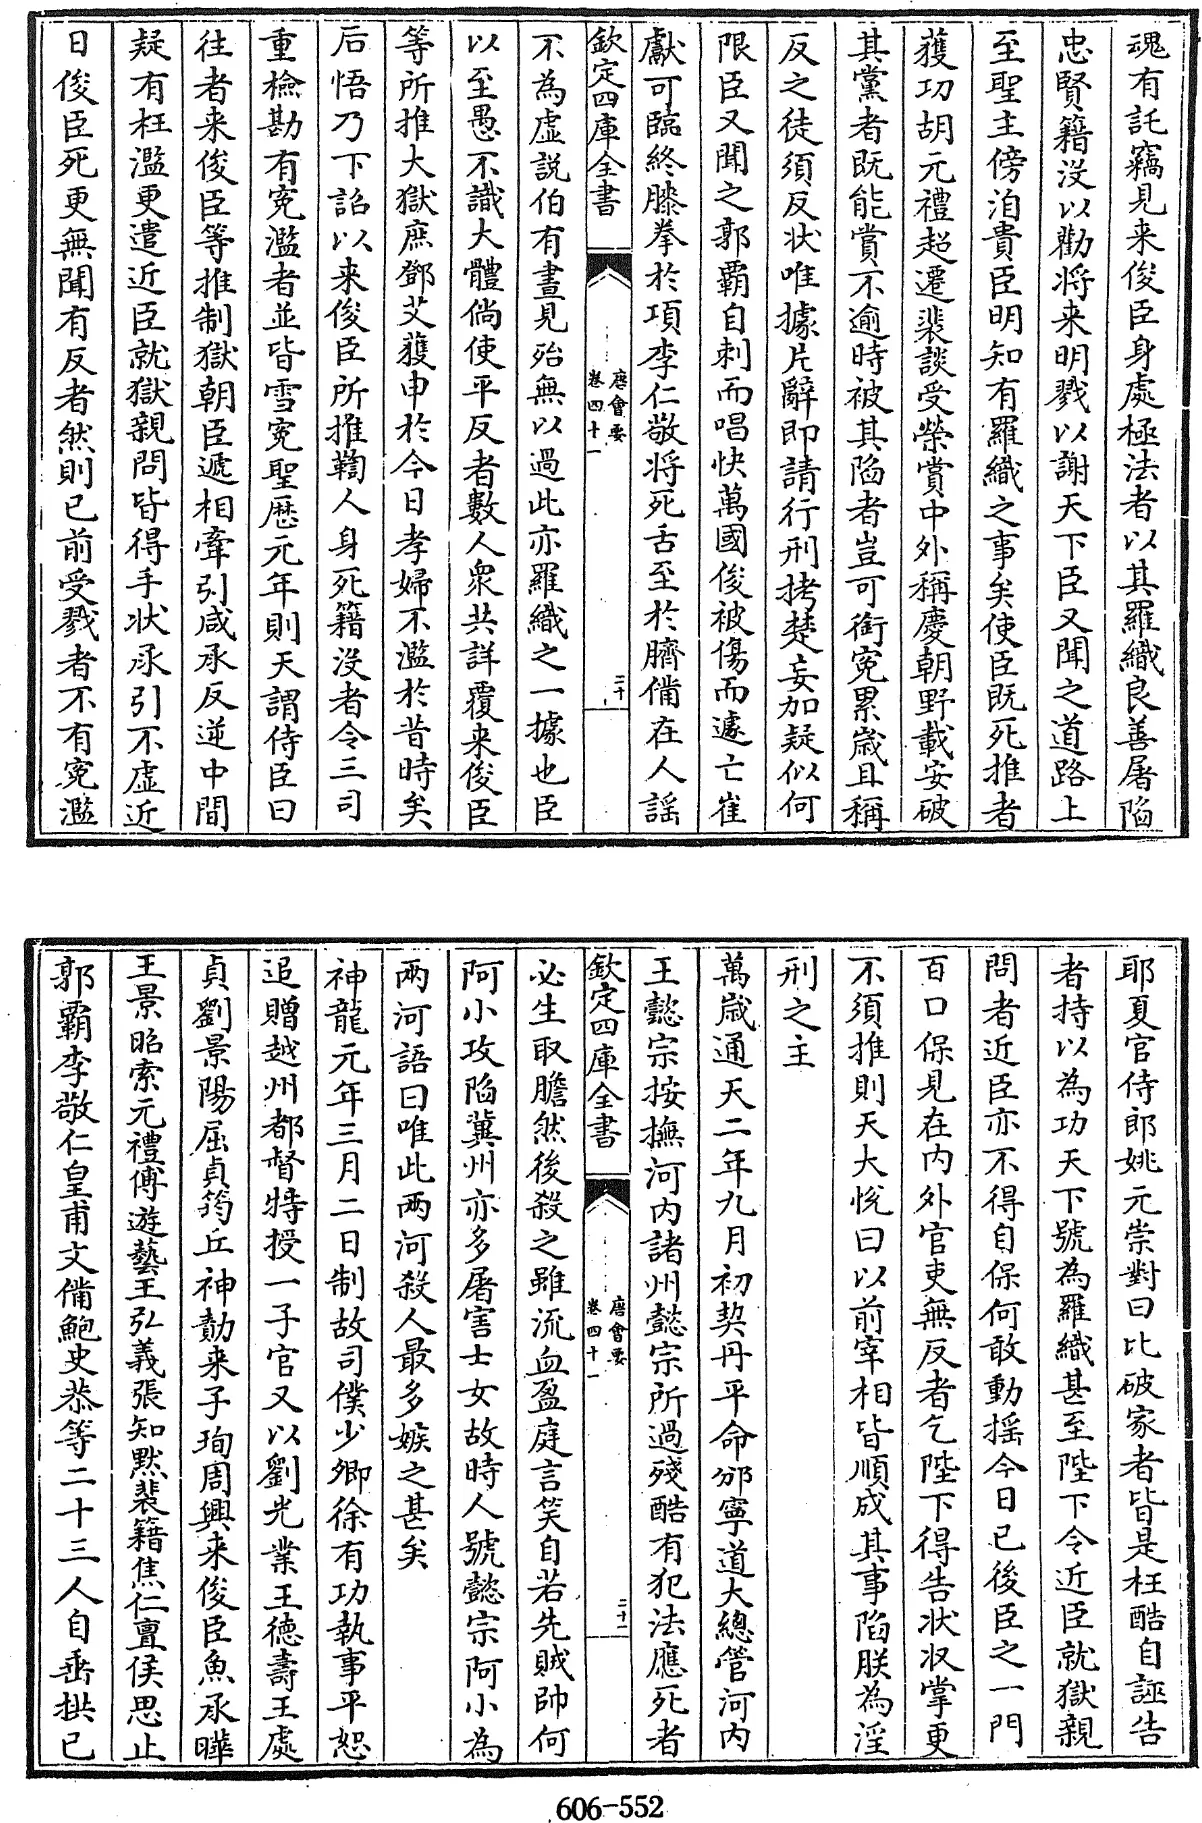 魂有託竊見来俊臣身處極法者以其羅織良善屠陷
忠賢籍沒以勸将来明戮以謝天下臣又聞之道路上
至聖主傍洎貴臣明知有羅織之事矣使臣既死推者
獲功胡元禮超遷裴談受榮賞中外稱慶朝野載安破
其黨者既能賞不逾時被其陷者豈可銜寃累嵗且稱
反之徒須反狀唯據片辭即請行刑拷楚妄加疑似何
限臣又聞之郭霸自刺而唱快萬國俊被傷而遽亡崔
獻可臨終膝拳於項李仁敬将死舌至於臍備在人謡
欽定四庫全書
唐會要
卷四十一
二十
不為虚說伯有晝見殆無以過此亦羅織之一據也臣
以至愚不識大體倘使平反者數人衆共詳覆来俊臣
等所推大獄庶鄧艾獲申於今日孝婦不濫於昔時矣
后悟乃下詔以来俊臣所推鞫人身死籍沒者令三司
重檢勘有寃濫者並皆雪寃聖歴元年則天謂侍臣曰
往者来俊臣等推制獄朝臣遞相牽引咸承反逆中間
疑有枉濫更遣近臣就獄親問皆得手狀承引不虚近
日俊臣死更無聞有反者然則已前受戮者不有寃濫
耶夏官侍郎姚元崇對曰比破家者皆是枉酷自誣告
者持以為功天下號為羅織甚至陛下令近臣就獄親
問者近臣亦不得自保何敢動揺今日已後臣之一門
百口保見在内外官吏無反者乞陛下得告狀收掌更
不須推則天大悅曰以前宰相皆順成其事陷朕為淫
刑之主
萬嵗通天二年九月初契丹平命邠寧道大總管河内
王懿宗按撫河内諸州懿宗所過殘酷有犯法應死者
欽定四庫全書
唐會要
卷四十一
二十一
必生取膽然後殺之雖流血盈庭言笑自若先賊帥何
阿小攻陷冀州亦多屠害士女故時人號懿宗阿小為
兩河語曰唯此兩河殺人最多嫉之甚矣
神龍元年三月二日制故司僕少卿徐有功執事平恕
追贈越州都督特授一子官又以劉光業王德壽王處
貞劉景陽屈貞筠丘神勣来子珣周興来俊臣魚承曄
王景昭索元禮傅遊藝王弘義張知黙裴籍焦仁亶侯思止
郭霸李敬仁皇甫文備鮑史恭等二十三人自垂拱已
606-552